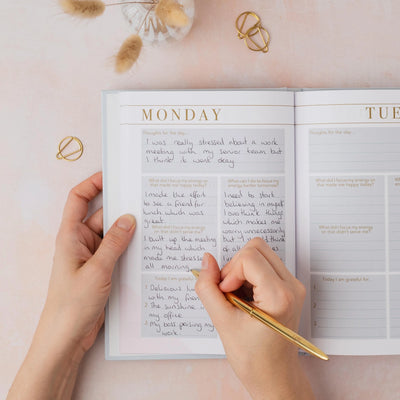 MONDAY
Thoughts for the day...
I was really stressed about a work
meeting with my senior team but
I think it went okay.
What did I focus my energy
on that made me happy today?
I made the effort
to see a friend for
lunch which was
great.
What did I focus my energy
on that didn't serve me?
I built up the meeting
in my head which
made me stressed
all morning
What can I do to focus my
energy better tomorrow?
I need to start
believing in myself
I overthink things
which makes me
worry unnecessarily
Today I am grateful for...
1. Delicious
with my friend
2. The sunshine
my office
3. My boss praising my
work
TUE
Thoughts for the day...
What did I focus my energy
on that made me happy today?
What did I focus my energy
on that didn't serve me?
Today I am grateful for...
1.
2.
3.